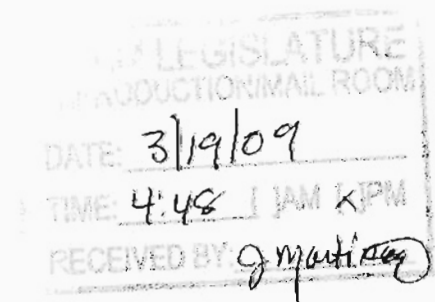 LEGISLATURE
PRODUCTION/MAIL ROOM
DATE: 3/19/09
TIME: 4:48 [ ]AM [X]PM
RECEIVED BY: J Martinez